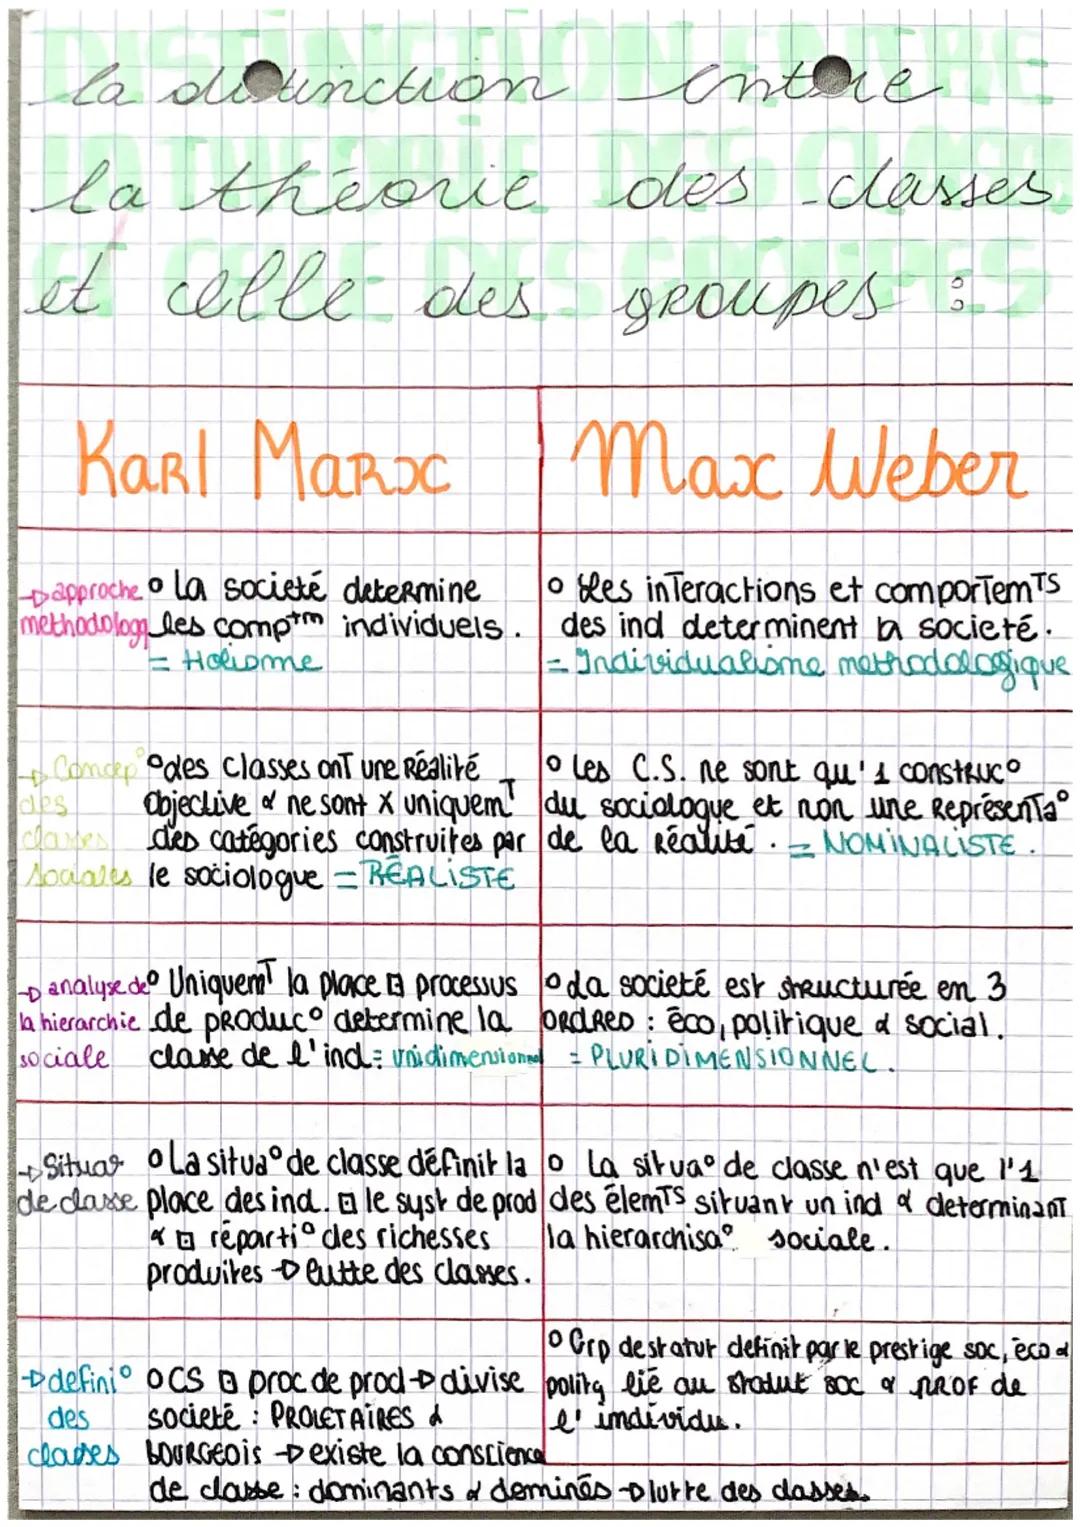 la distinction entre
la théorie des classes
et celle des groupes :
Karl Marx
Max Weber
→ approche
methodolog
° la societé determine
les comptm individuels.
= Holisme
° Les interactions et comportemTS
des ind determinent la societé.
= Individualisme methodologique
→ Concep°
des
classes
sociales
° des classes ont une Réalité
objective & ne sont X uniquemT
des catégories construites par
le sociologue = RÉALISTE
° les C.S. ne sont qu'1 construc°
du sociologue et non une Représenta°
de la Réalité. = NOMINALISTE.
→ analyse de
la hierarchie
sociale
° UniquemT la place ⊡ processus
de produc° determine la
classe de l'ind = unidimensionnel
° La societé est structurée en 3
ORDRES : éco, politique & social.
= PLURIDIMENSIONNEL.
→ Situa°
de classe
° La situa° de classe définit la
place des ind. ⊡ le syst de prod
& ⊡ réparti° des richesses
produites → lutte des classes.
° La situa° de classe n'est que l'1
des élemTS situant un ind & determinanT
la hierarchisa° sociale.
→ defini°
des
classes
° CS ⊡ proc de prod → divise
societé : PROLETAIRES &
BOURGEOIS → existe la conscience
de classe : dominants & deminés → lutte des classes.
° Grp de statut définit par le prestige soc, éco &
politq lié au statut soc & PROF de
l'individu.